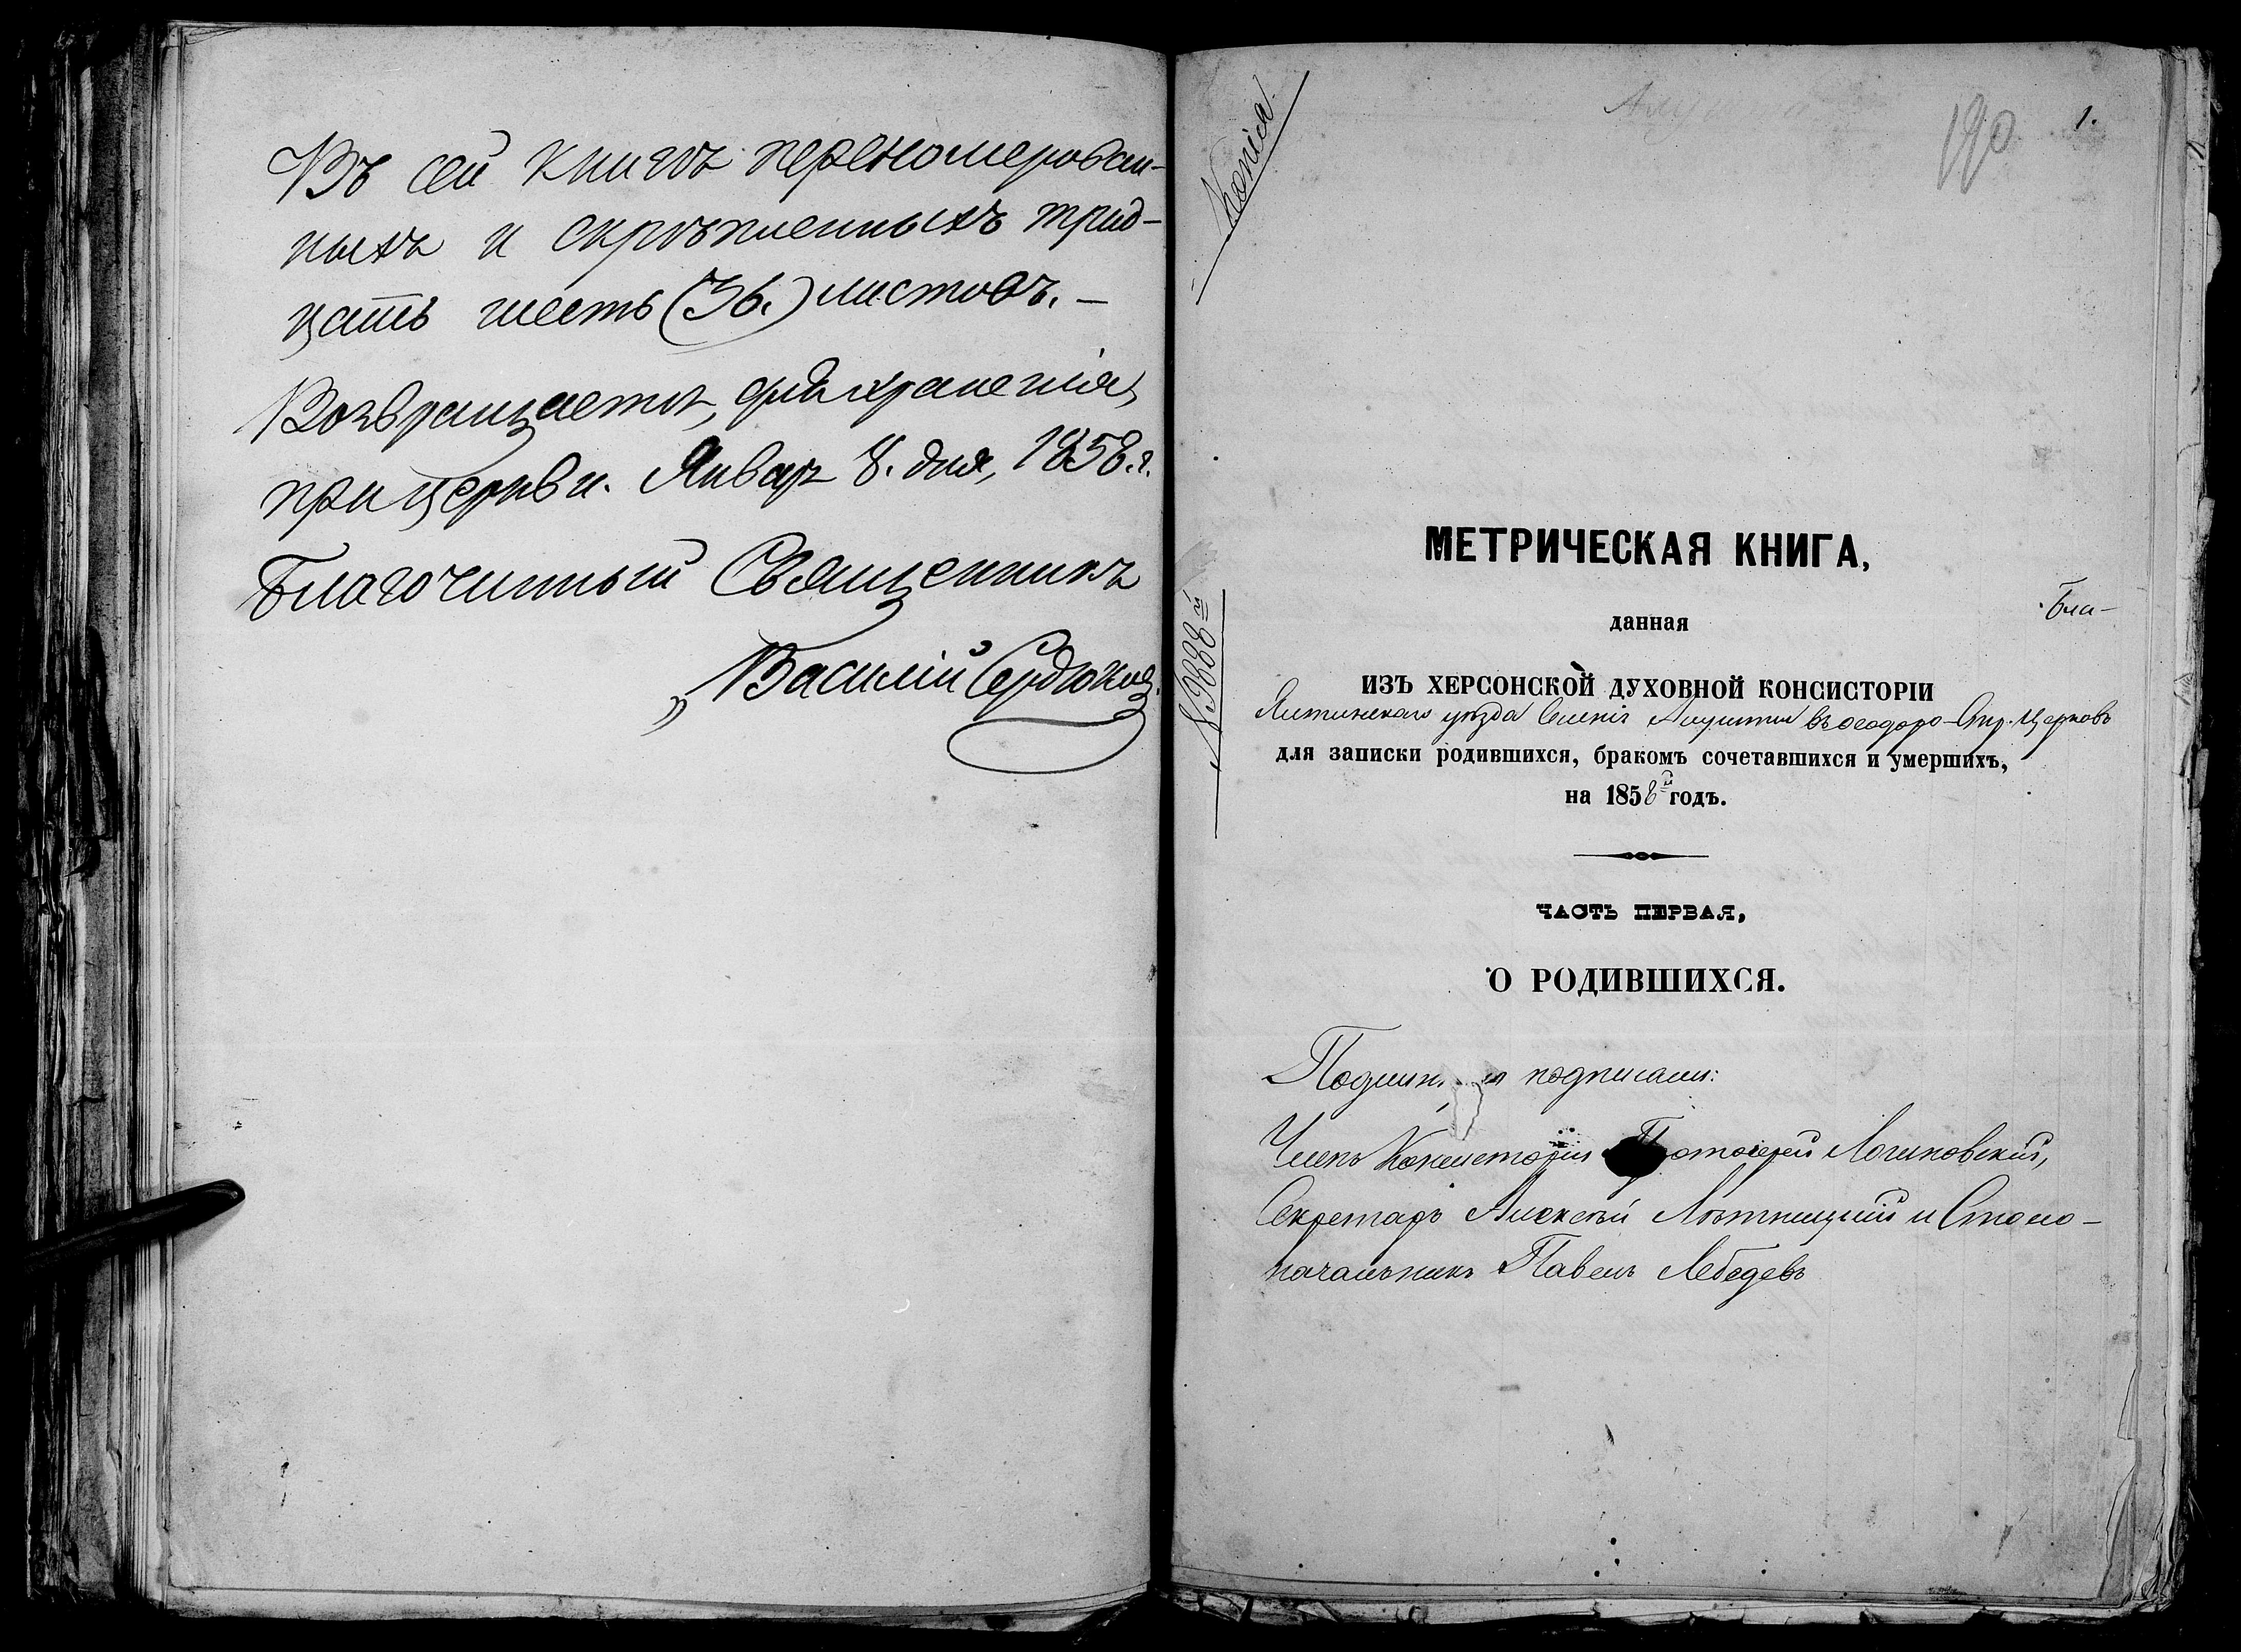 Въ сей книгѣ переномерован-
ныхъ и скрѣпленныхъ трид-
цать шесть (36.) листовъ. –
Возвращается, для храненія,
при церкви. Январ 8. дня, 1858. г.
Благочинный Священникъ
Василій Сердюковъ.
Копія.
Алушта
190
1.
МЕТРИЧЕСКАЯ КНИГА,
Бла-
данная
ИЗЪ ХЕРСОНСКОЙ ДУХОВНОЙ КОНСИСТОРІИ
Ялтинскаго уѣзда Селенія Алушты въ Ѳеодоро-Стр. Церковь
для записки родившихся, бракомъ сочетавшихся и умершихъ,
на 1858й годъ.
ЧАСТЬ ПЕРВАЯ,
О РОДИВШИХСЯ.
подписали:
Членъ Консисторіи Протоіерей Логиновскій,
Секретарь Алексѣй Лѣтницкій и Столо-
начальникъ Павелъ Лебедевъ